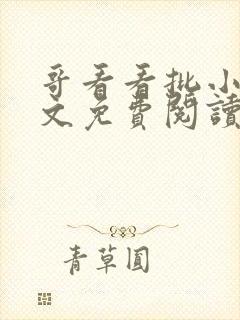 哥看看批小
文免費閱讀
青草圓